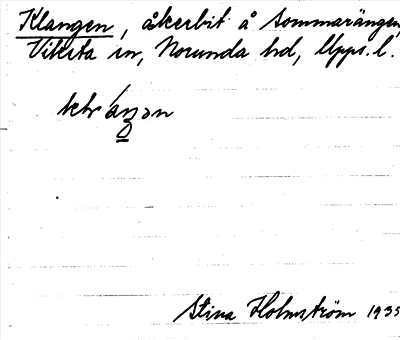 Klangen, åkerbit å Sommarängen,
Viksta sn, Norunda hd, Upps. l.
Stina Holmström 1935